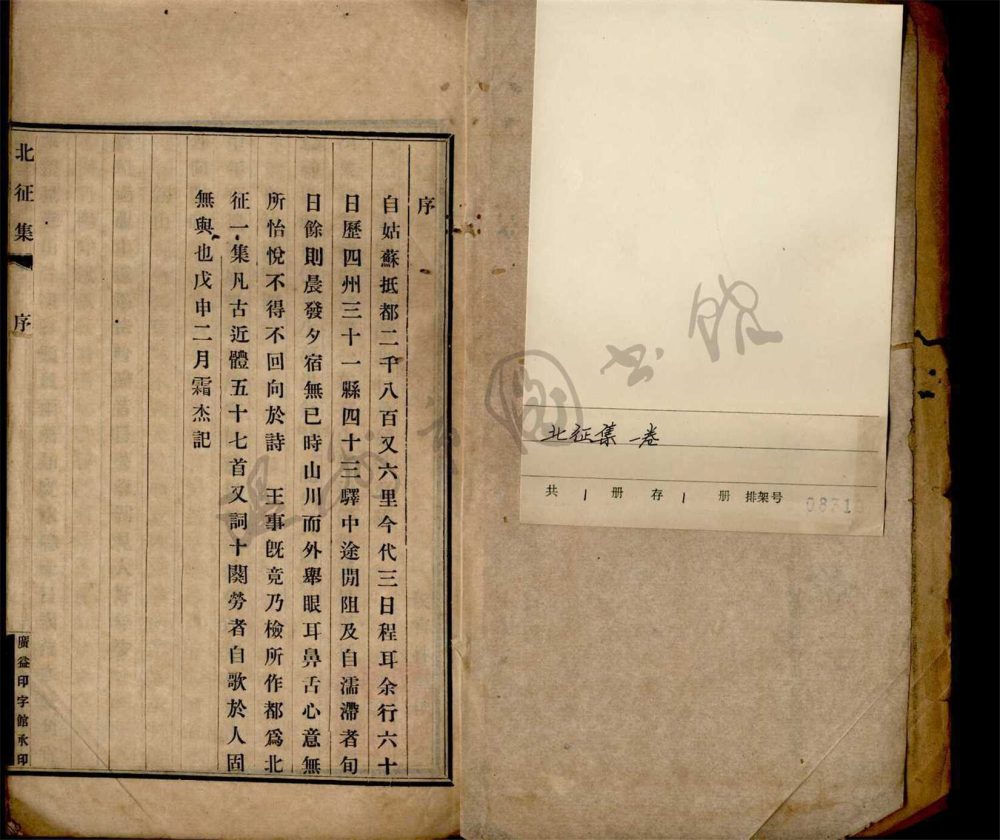 北征集一卷
共 1 册 存 1 册 排架号
序
自姑蘇抵都二千八百又六里今代三日程耳余行六十
日歷四州三十一縣四十三驛中途閒阻及自濡滯者旬
日餘則晨發夕宿無已時山川而外舉眼耳鼻舌心意無
所怡悅不得不回向於詩 王事旣竟乃檢所作都爲北
征一集凡古近體五十七首又詞十闋勞者自歌於人固
無與也戊申二月霜杰記
北征集 序
廣益印字館承印